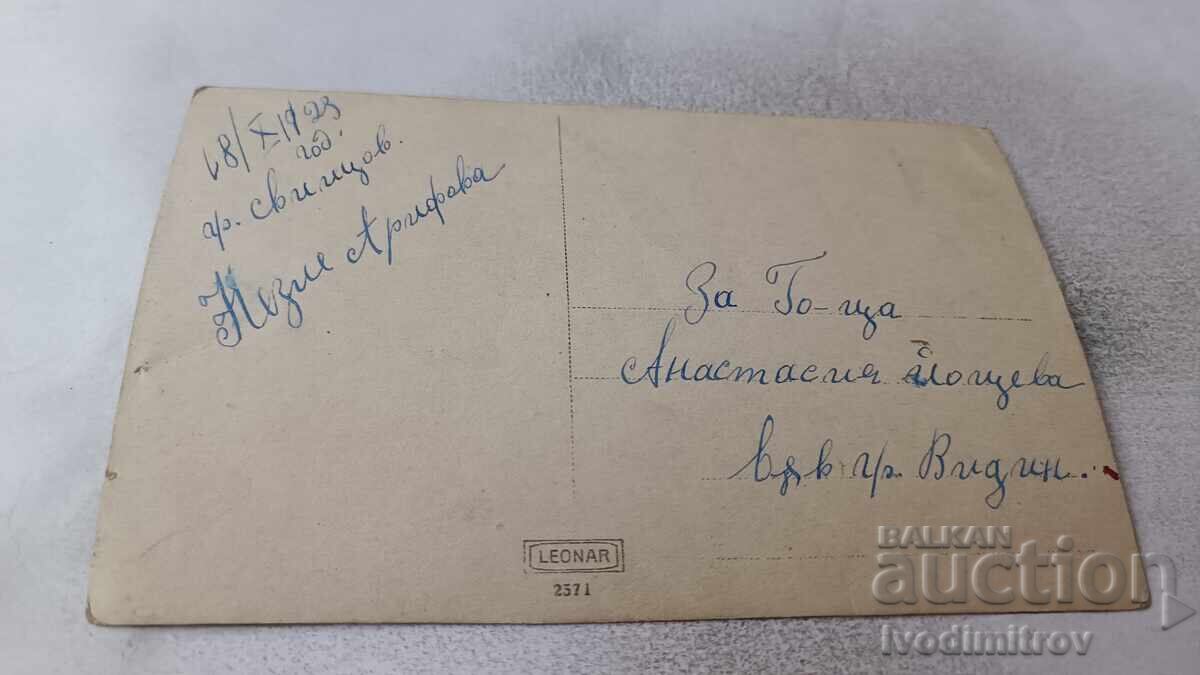 18/X 1923
год.
гр. Свищов.
Назле Арифова
За Го-ща
Анастасия Йоцева
в гр. Видин.
LEONAR
2371
BALKAN
auction
Ivodimitrov